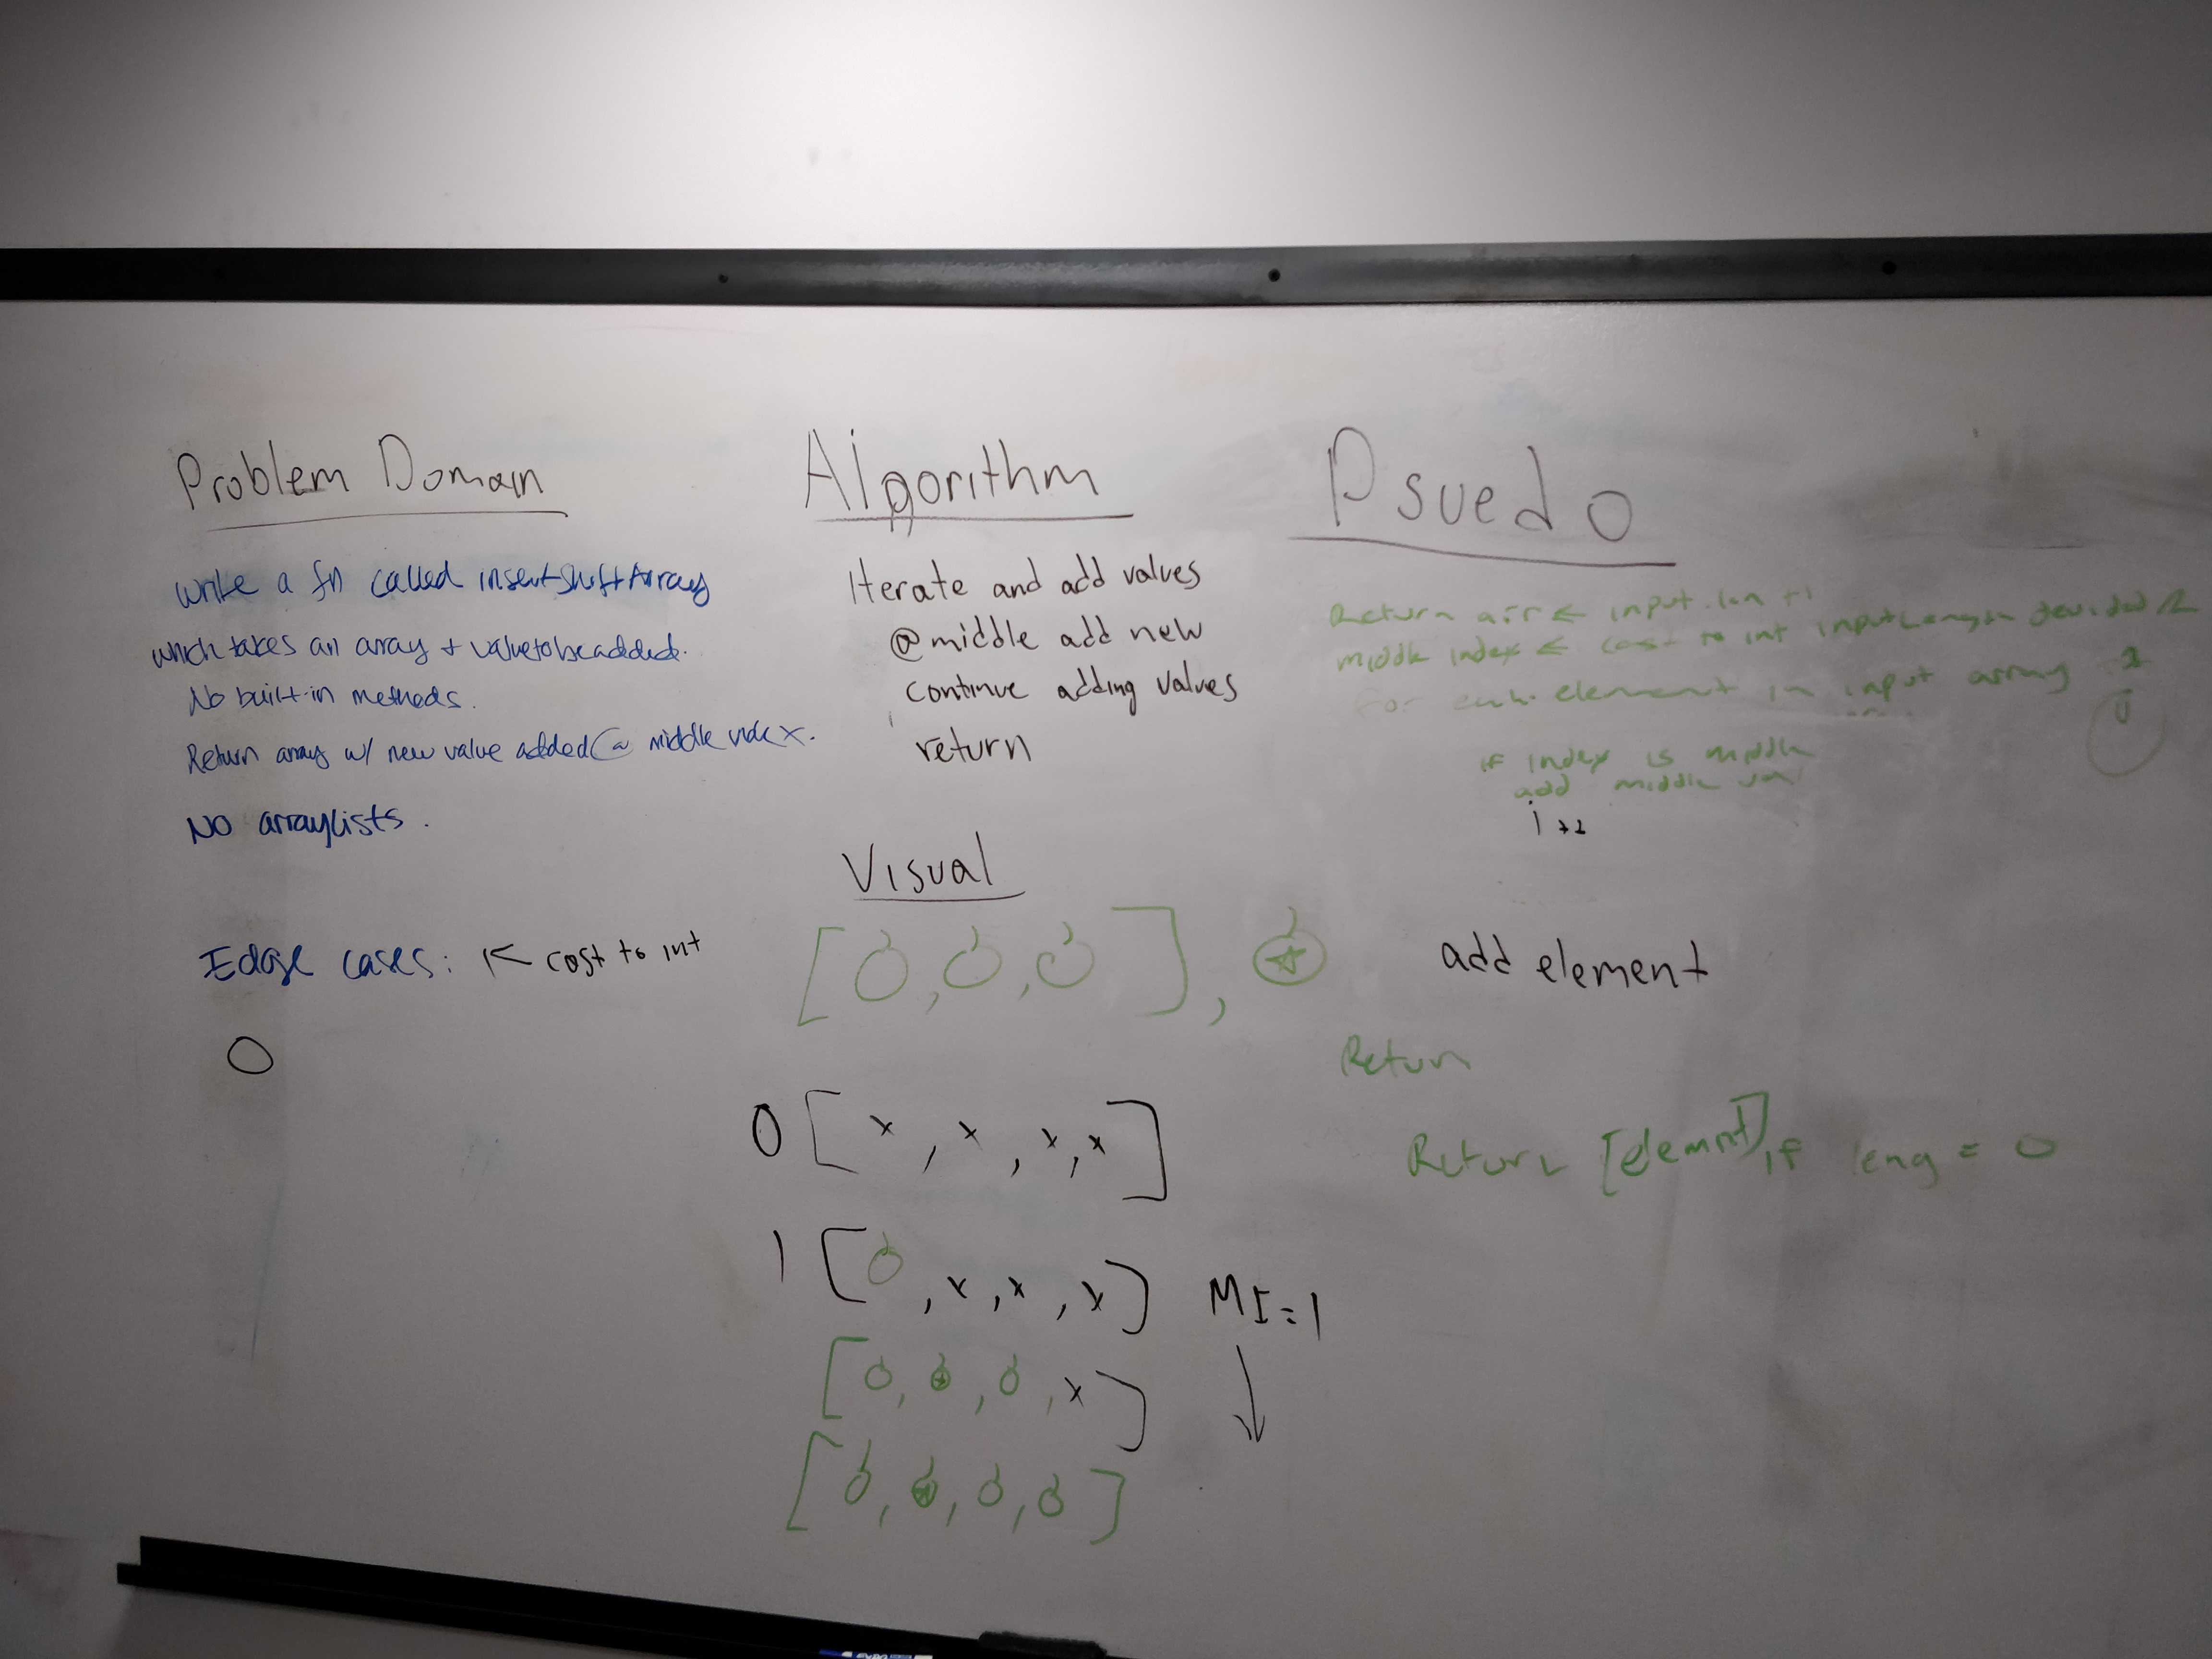 Problem Domain
write a fn called insertShiftArray
which takes an array + valuetobeadded.
No built-in methods.
Return array w/ new value added @ middle index.
No arraylists.
Edge cases: 1 ← cast to int
0
Algorithm
Iterate and add values
@middle add new
continue adding values
return
Visual
[ , , ] ,
0 [ x , x , x , x ]
1 [ , x , x , x ] MI=1
[ , , , x ]
[ , , , ]
Psuedo
Return arr ← input.len +1
middle index ← cast to int inputLength devided /2
For each element in input array
i
if index is middle
add middle val
i++
add element
Return
Return [elemnt] if leng = 0